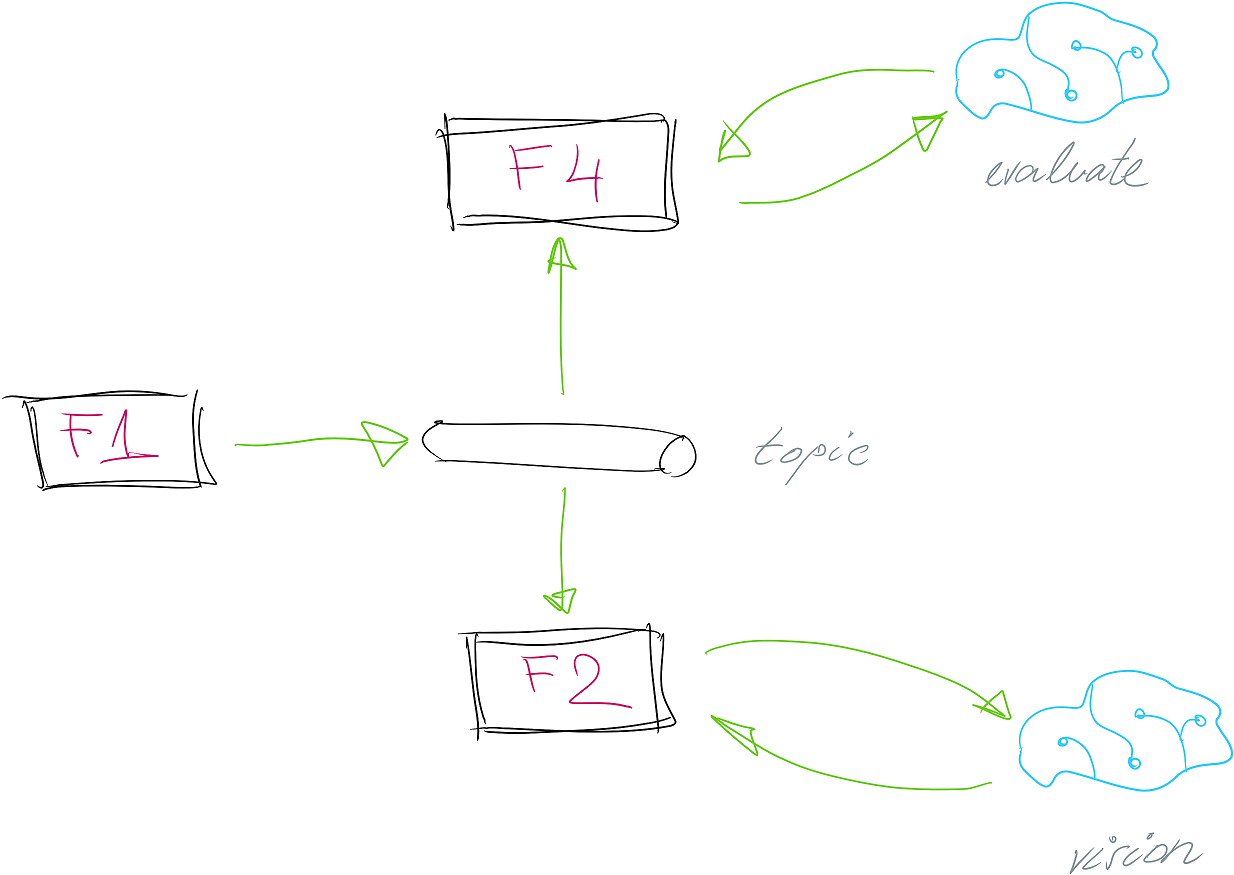 evaluate
F4
F1
topic
F2
vision